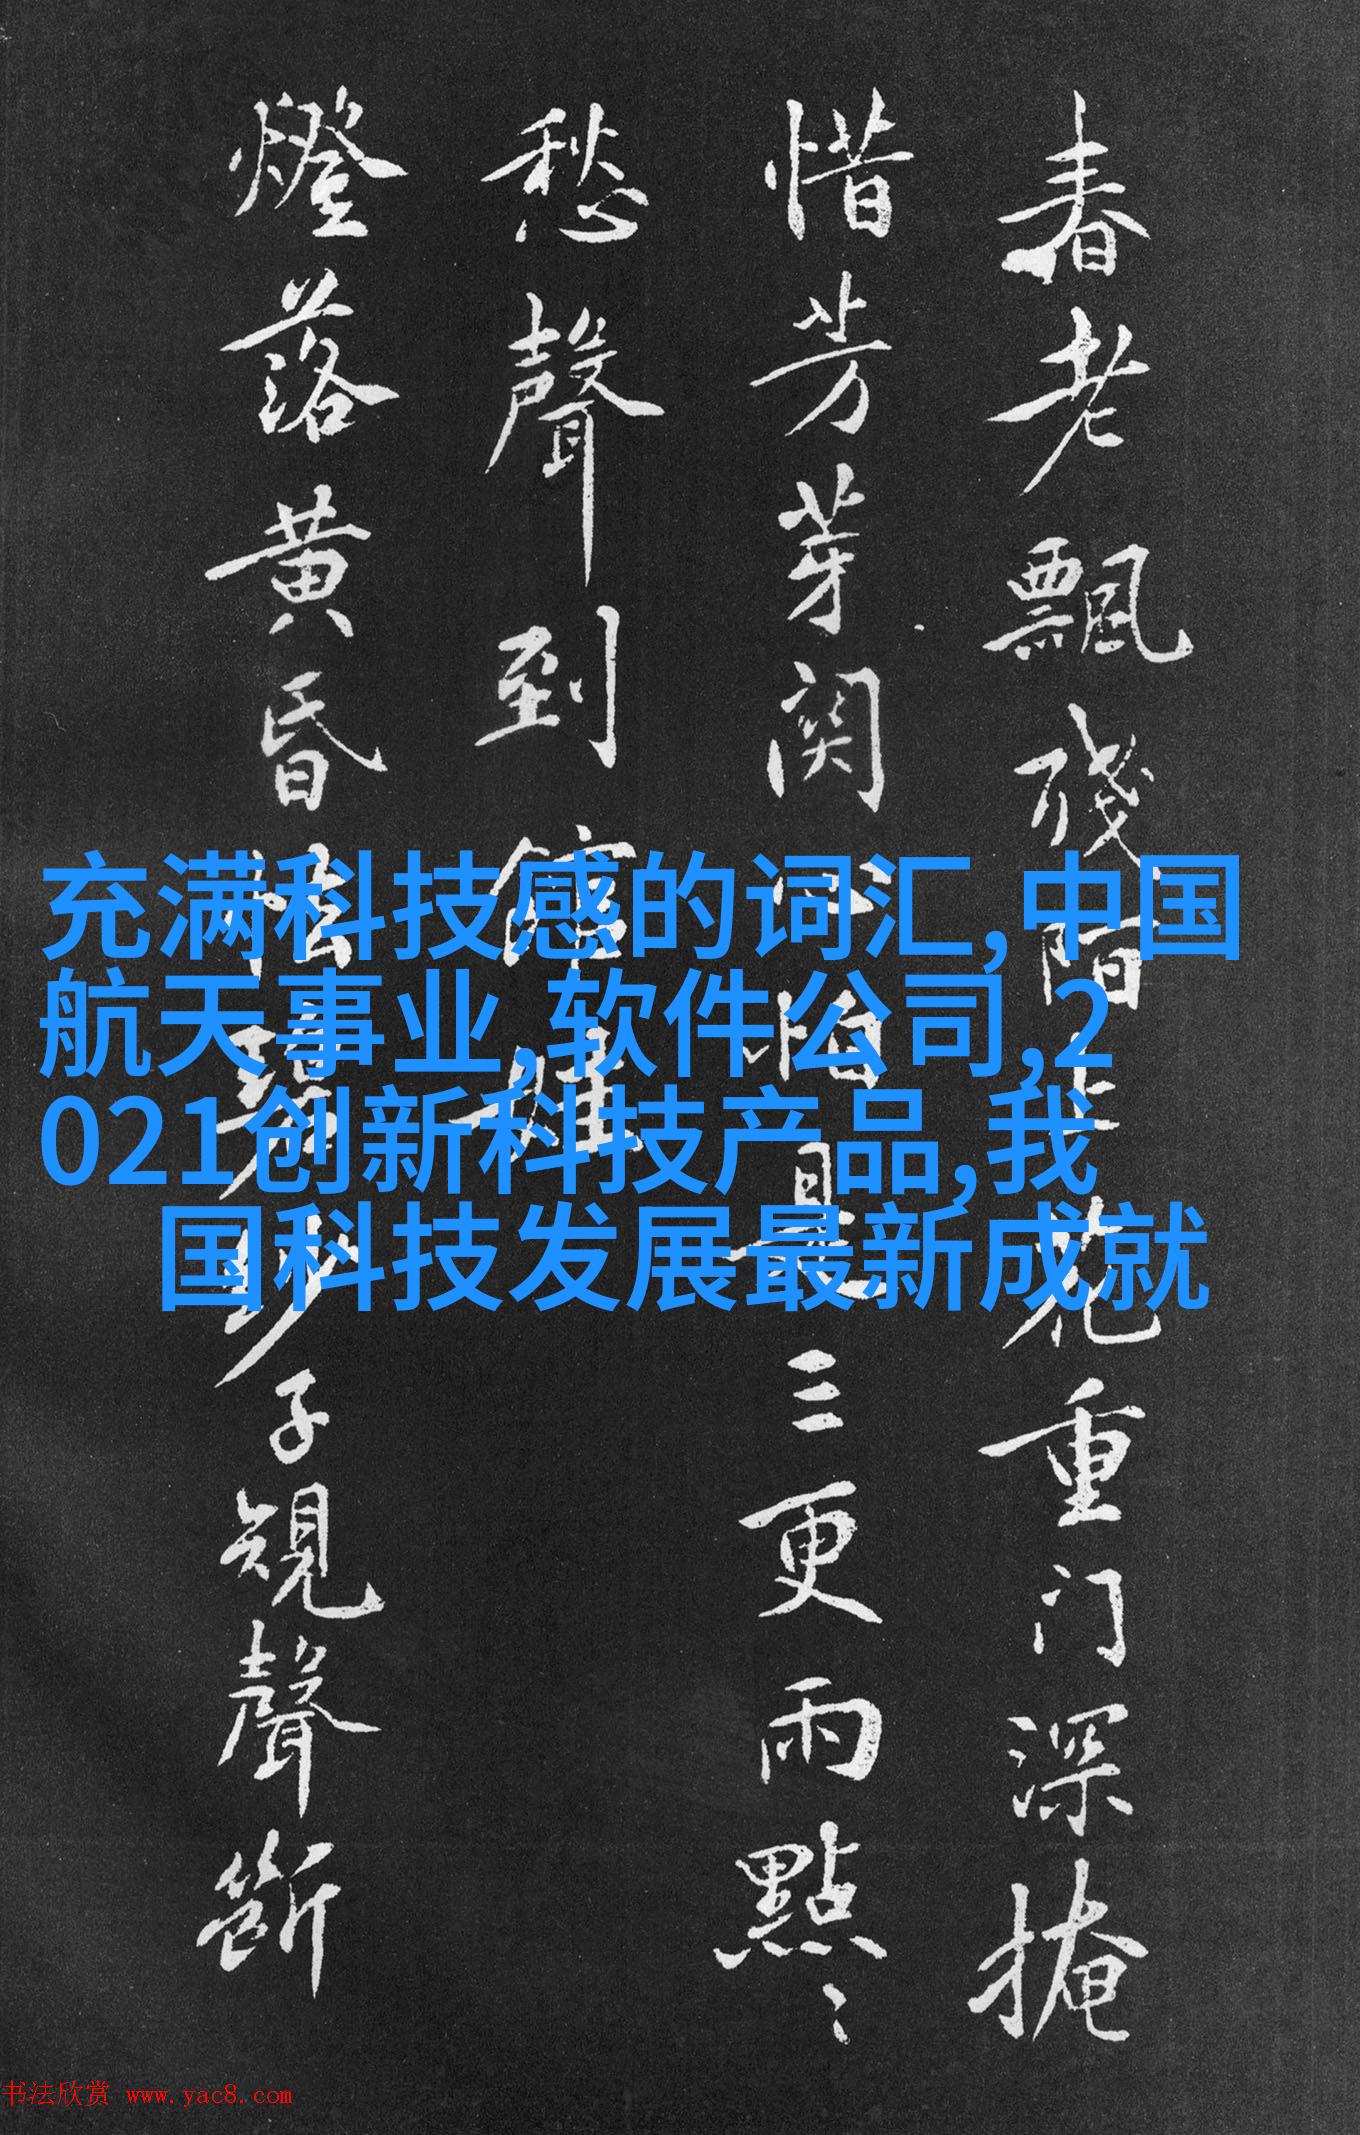 春老飄殘陌上花重门深掩
惜芳芽関心怕是三更雨點〻
愁聲到
燈落黄昏子規聲斷
充满科技感的词汇,中国
航天事业,软件公司,2
021创新科技产品,我
国科技发展最新成就
书法欣赏 www.yac8.com